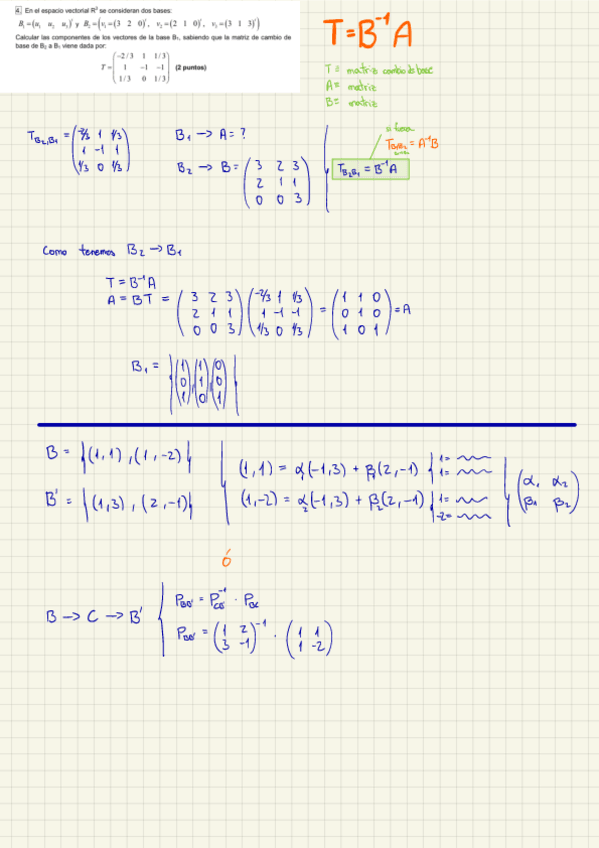 4. En el espacio vectorial R³ se consideran dos bases:
B₁ = (u₁ u₂ u₃)ᵗ y B₂ = (v₁ = (3 2 0)ᵗ, v₂ = (2 1 0)ᵗ, v₃ = (3 1 3)ᵗ)
Calcular las componentes de los vectores de la base B₁, sabiendo que la matriz de cambio de
base de B₂ a B₁ viene dada por:
-2/3 1 1/3
T = 1 -1 -1 (2 puntos)
1/3 0 1/3
T = B⁻¹A
T = matriz cambio de base
A = matriz
B = matriz
T_B₂,B₁ = (-2/3 1 1/3
1 -1 1
1/3 0 1/3)
B₁ → A = ?
B₂ → B = (3 2 3
2 1 1
0 0 3)
T_B₁B₂ = A⁻¹B
T_B₂B₁ = B⁻¹A
Como tenemos B₂ → B₁
T = B⁻¹A
A = BT = (3 2 3 (-2/3 1 1/3 (1 1 0
2 1 1 1 -1 -1 = 0 1 0 = A
0 0 3) 1/3 0 1/3) 1 0 1)
B₁ = {(1 (1 (0
0 1 0
1), 0), 1)}
B = {(1,1), (1,-2)}
B' = {(1,3), (2,-1)}
(1,1) = α₁(-1,3) + β₁(2,-1) {1= 1=
(1,-2) = α₂(-1,3) + β₂(2,-1) {1= -2=
(α₁ α₂
β₁ β₂)
ó
B → C → B'
P_BB' = P_CB'⁻¹ · P_BC
P_BB' = (1 2 ⁻¹ · (1 1
3 -1) 1 -2)